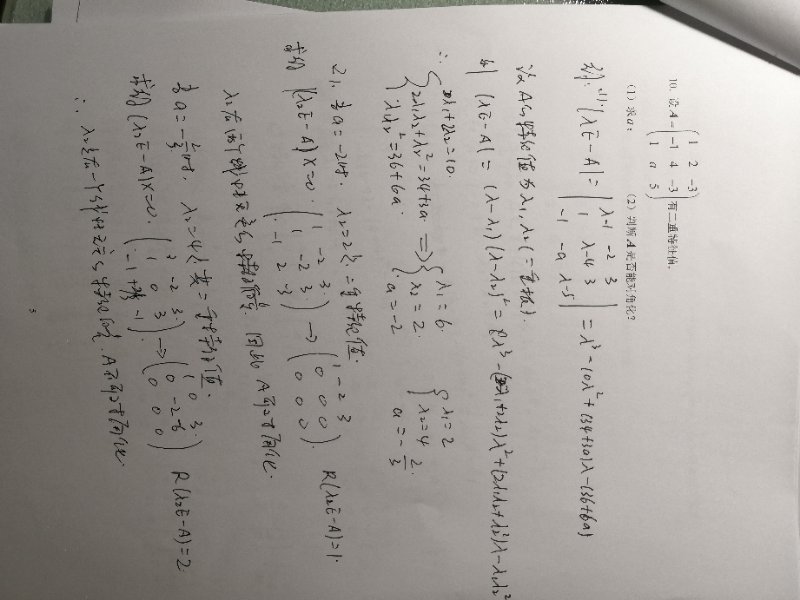 10. 设 A = ( 1 2 -3
-1 4 -3
1 a 5 ) 有二重特征值.
(1) 求 a; (2) 判断 A 是否能对角化?
解: (1). |λE-A| = | λ-1 -2 3
1 λ-4 3
-1 -a λ-5 | = λ³-10λ²+(34+3a)λ-(36+6a)
设A的特征值为λ₁, λ₂(二重根).
则 |λE-A| = (λ-λ₁)(λ-λ₂)² = λ³-(λ₁+2λ₂)λ²+(2λ₁λ₂+λ₂²)λ-λ₁λ₂²
∴ { λ₁+2λ₂=10
2λ₁λ₂+λ₂²=34+3a
λ₁λ₂²=36+6a
⇒ { λ₁=6
λ₂=2
a=-2
{ λ₁=2
λ₂=4
a=-2/3
2). 当a=-2时. λ₂=2是二重特征值.
求解 (λ₂E-A)X=0. ( 1 -2 3
1 -2 3
-1 2 -3 ) → ( 1 -2 3
0 0 0
0 0 0 ). R(λ₂E-A)=1.
λ₂有两个线性无关的特征向量. 因此 A可对角化.
当a=-2/3时. λ₂=4是其二重特征值.
求解 (λ₂E-A)X=0. ( 3 -2 3
1 0 3
-1 +2/3 -1 ) → ( 1 0 3
0 -2 -6
0 0 0 ) R(λ₂E-A)=2
∴ λ₂只有一个线性无关的特征向量. A不可对角化.
5